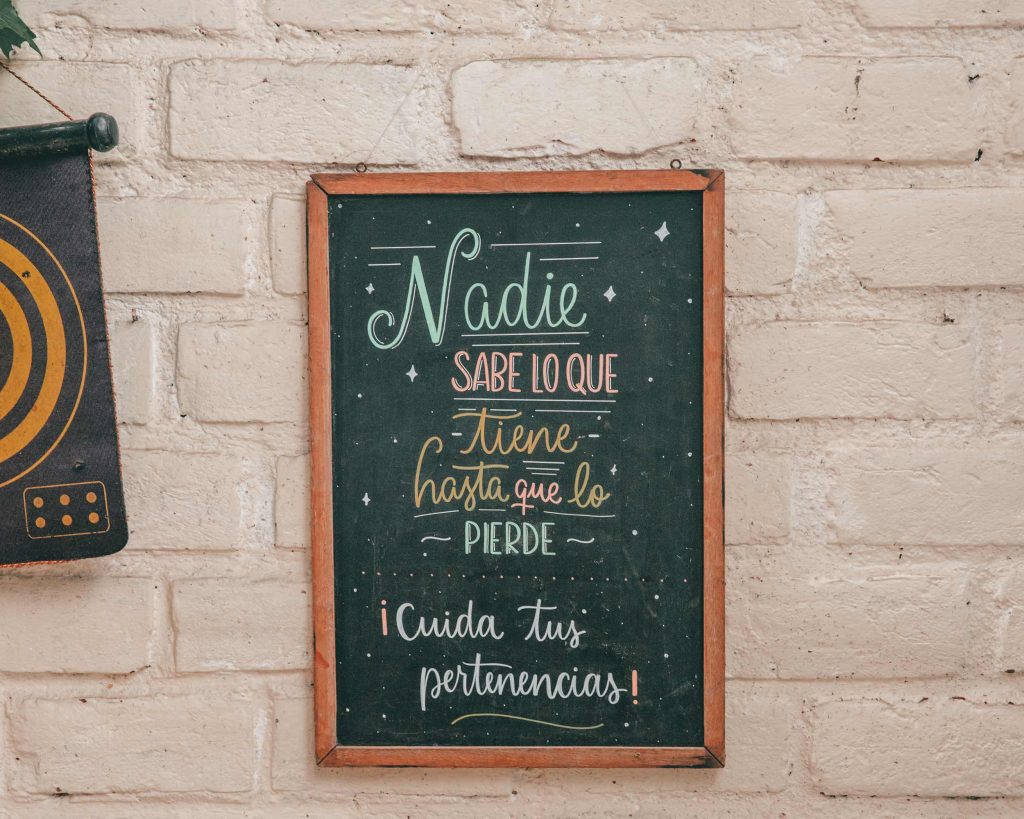 Nadie
SABE LO QUE
tiene
hasta que lo
PIERDE
¡Cuida tus
pertenencias!